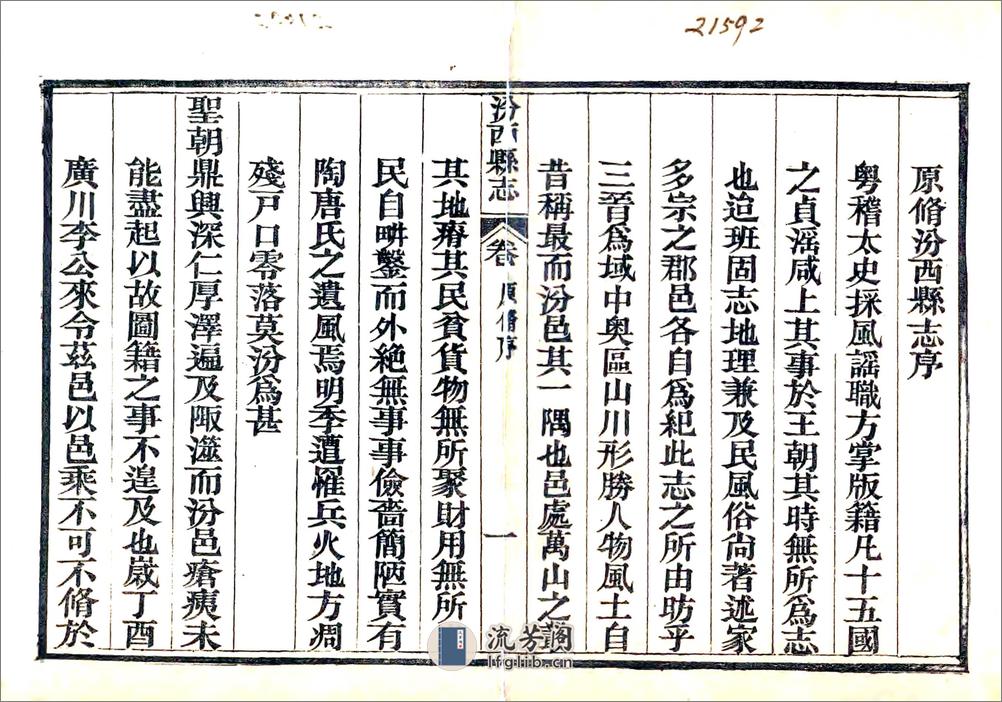 21592
原脩汾西縣志序
粤稽太史採風謡職方掌版籍凡十五國
之貞滛咸上其事於王朝其時無所爲志
也迨班固志地理兼及民風俗尚著述家
多宗之郡邑各自爲紀此志之所由昉乎
三晉爲域中奥區山川形勝人物風土自
昔稱最而汾邑其一隅也邑處萬山之
汾西縣志 卷 原脩序 一
其地瘠其民貧貨物無所聚財用無所
民自畊鑿而外絶無事事儉嗇簡陋實有
陶唐氏之遺風焉明季遭罹兵火地方凋
殘戸口零落莫汾爲甚
聖朝鼎興深仁厚澤遍及陬澨而汾邑瘡痍未
能盡起以故圖籍之事不遑及也嵗丁酉
廣川李公來令茲邑以邑乘不可不脩於
流芳阁
lfglib.cn